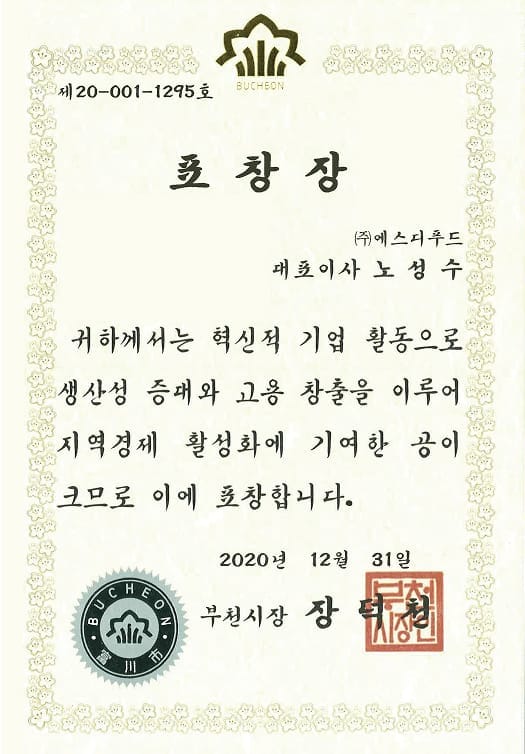 BUCHEON
제20-001-1295호
표창장
㈜에스디푸드
대표이사 노성수
귀하께서는 혁신적 기업 활동으로
생산성 증대와 고용 창출을 이루어
지역경제 활성화에 기여한 공이
크므로 이에 표창합니다.
2020년 12월 31일
부천시장 장덕천
부천
시장인
BUCHEON
富川市